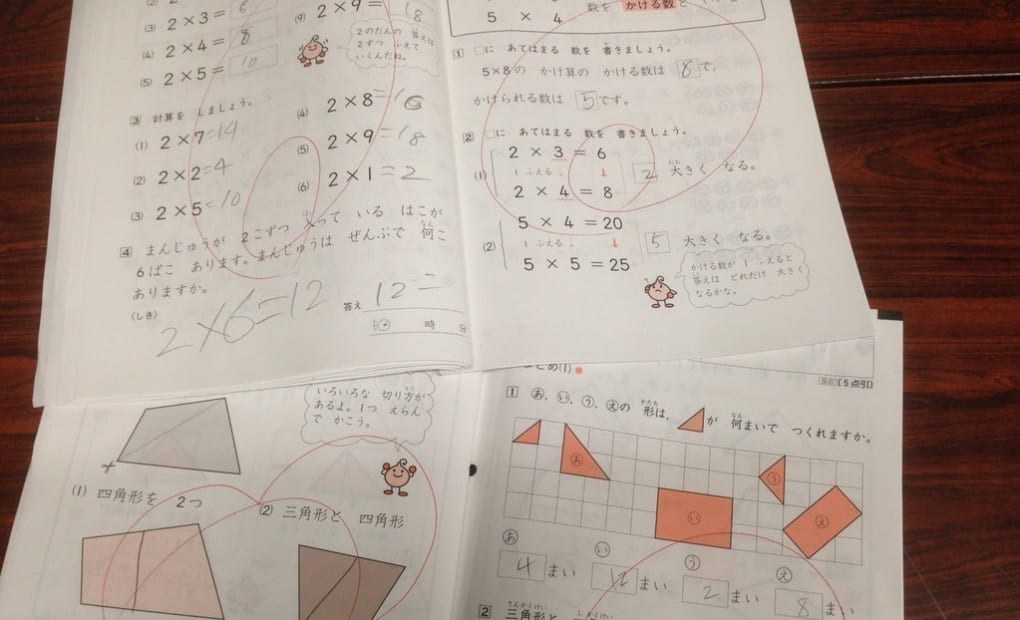 (3) 2×3= 6
(4) 2×4= 8
(5) 2×5= 10
(9) 2×9= 18
2のだんの 答えは
2ずつ ふえて
いくんだね。
3 計算を しましょう。
(1) 2×7=14
(2) 2×2=4
(3) 2×5=10
(4) 2×8=16
(5) 2×9=18
(6) 2×1=2
4 まんじゅうが 2こずつ 入って いる はこが
6ぱこ あります。まんじゅうは ぜんぶで 何こ
ありますか。
(しき)
2×6=12
答え 12こ
時 分
5 × 4
数を かける数と
1 □に あてはまる 数を 書きましょう。
5×8の かけ算の かける数は 8 で,
かけられる数は 5 です。
2 □に あてはまる 数を 書きましょう。
(1) 2 × 3 = 6
1 ふえる
2 × 4 = 8
2 大きく なる。
(2) 5 × 4 = 20
1 ふえる
5 × 5 = 25
5 大きく なる。
かける数が 1 ふえると
答えは どれだけ 大きく
なるかな。
いろいろな 切り方が
あるよ。1つ えらん
で かこう。
(1) 四角形を 2つ
(2) 三角形と 四角形
まとめ(1)
(5点引)
1 あ, い, う, えの 形は, が 何まいで つくれますか。
あ
い
う
え
あ
4 まい
い
12 まい
う
2 まい
え
8 まい
2 三角形と